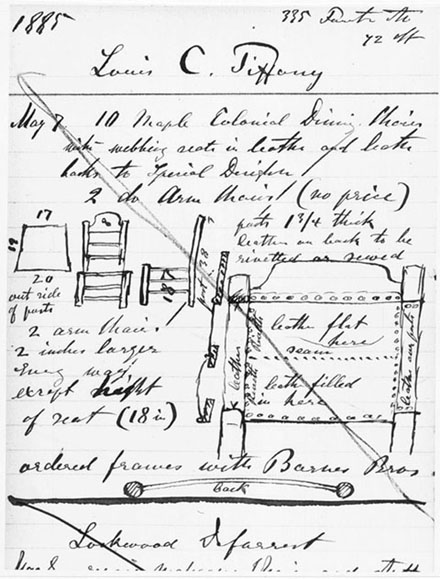 1885
335 Fourth Av
72 off
Louis C. Tiffany
May 7 10 Maple Colonial Dining Chairs
with webbing seats in leather and leather
backs to Special Design
2 do Arm Chairs (no price)
posts 1 3/4 thick
leather on back to be
rivetted or sewed
17
19
20
8
18
post 38
out side
of posts
2 arm Chairs
2 inches larger
Every way
except height
of seat (18 in)
leather flat
here
seam
leath filled
in here
leather
leather on post
ordered frames with Barnes Bros
back
Lockwood Deforrest